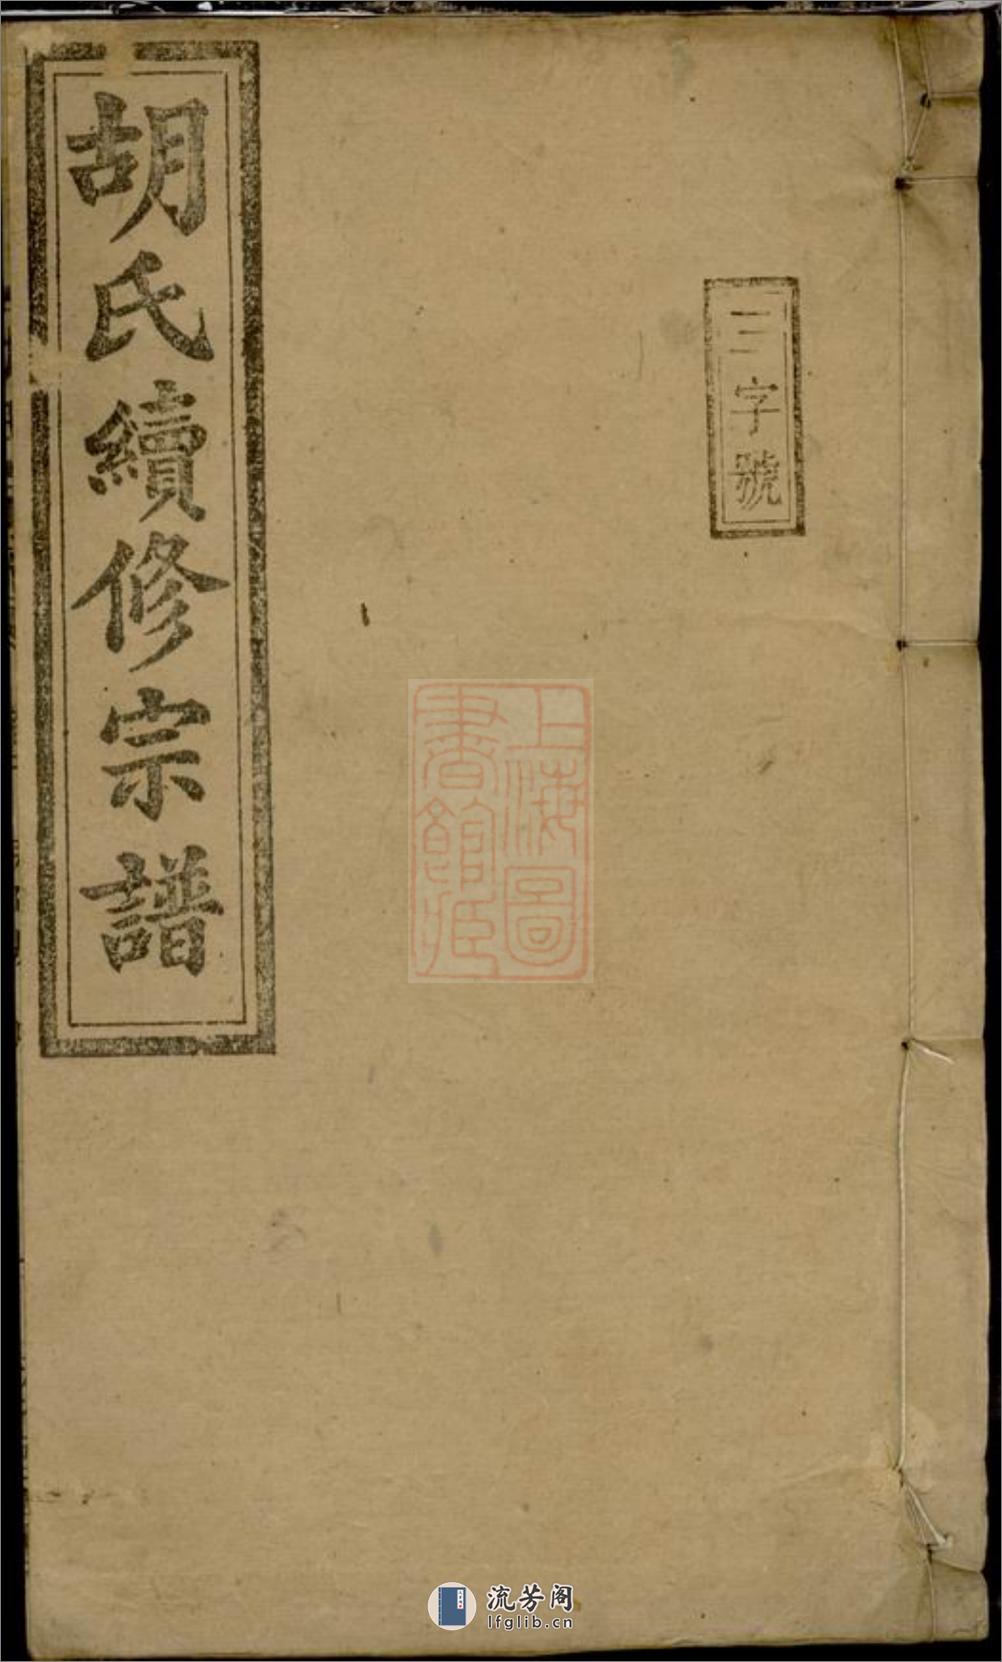 三字號
胡氏續修宗譜
上海圖
書館藏
流芳阁
lfglib.cn